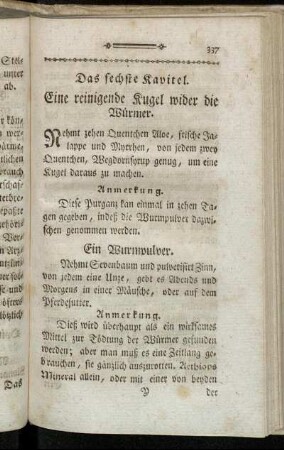 337
Das sechste Kapitel.
Eine reinigende Kugel wider die
Würmer.
Nehmt zehen Quentchen Aloe, frische Ja-
lappe und Myrrhen, von jedem zwey
Quentchen, Wegdornsyrup genug, um eine
Kugel daraus zu machen.
Anmerkung.
Diese Purganz kan einmal in zehen Ta-
gen gegeben, indeß die Wurmpulver dazwi-
schen genommen werden.
Ein Wurmpulver.
Nehmt Sevenbaum und pulverisirt Zinn,
von jedem eine Unze, gebt es Abends und
Morgens in einer Mäusche, oder auf dem
Pferdefutter.
Anmerkung.
Dieß wird überhaupt als ein wirksames
Mittel zur Tödtung der Würmer gefunden
werden; aber man muß es eine Zeitlang ge-
brauchen, sie gänzlich auszurotten. Aethiops
Mineral allein, oder mit einer von beyden
Y der
unter
ab.
Das